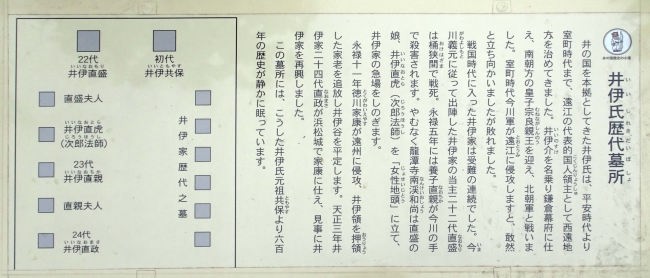 井伊氏歴代墓所
井の国を本拠としてきた井伊氏は、平安時代より
室町時代まで、遠江の代表的国人領主として西遠地
方を治めてきました。井伊介を名乗り鎌倉幕府に仕
え、南朝方の皇子宗良親王を迎え、北朝軍と戦いま
した。室町時代今川軍が遠江に侵攻しますと、敢然
と立ち向かいましたが敗れました。
戦国時代に入った井伊家は受難の連続でした。今
川義元に従って出陣した井伊家の当主二十二代直盛
は桶狭間で戦死。永禄五年には養子直親が今川の手
で殺害されます。やむなく龍潭寺南渓和尚は直盛の
娘、井伊直虎（次郎法師）を「女性地頭」に立て、
井伊家の急場をしのぎます。
永禄十一年徳川家康が遠州に侵攻、井伊領を押領
した家老を追放し井伊谷を平定します。天正三年井
伊家二十四代直政が浜松城で家康に仕え、見事に井
伊家を再興しました。
この墓所には、こうした井伊氏元祖共保より六百
年の歴史が静かに眠っています。
初代
井伊共保
22代
井伊直盛
井伊家歴代之墓
直盛夫人
井伊直虎
（次郎法師）
23代
井伊直親
直親夫人
24代
井伊直政